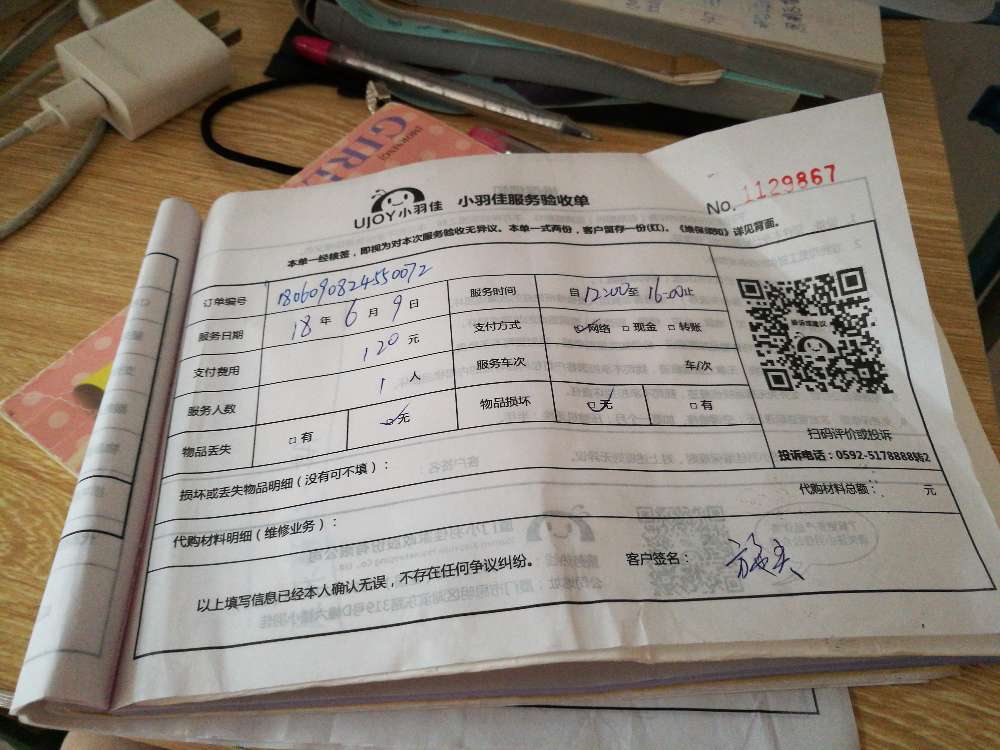 MORNING
GIRL
UJOY小羽佳 小羽佳服务验收单
No. 1129867
本单一经核签，即视为对本次服务验收无异议。本单一式两份，客户留存一份(红)。《维保须知》详见背面。
订单编号 1806090824550072 服务时间 自12:00至16:00止
服务日期 18年6月9日 支付方式 ☑网络 □现金 □转账
支付费用 120元 服务车次 车/次
服务人数 1人 物品损坏 ☑无 □有
物品丢失 □有 ☑无
扫码评价或投诉
投诉电话：0592-5178888转2
损坏或丢失物品明细（没有可不填）：
代购材料明细（维修业务）： 代购材料总额： 元
以上填写信息已经本人确认无误，不存在任何争议纠纷。 客户签名：